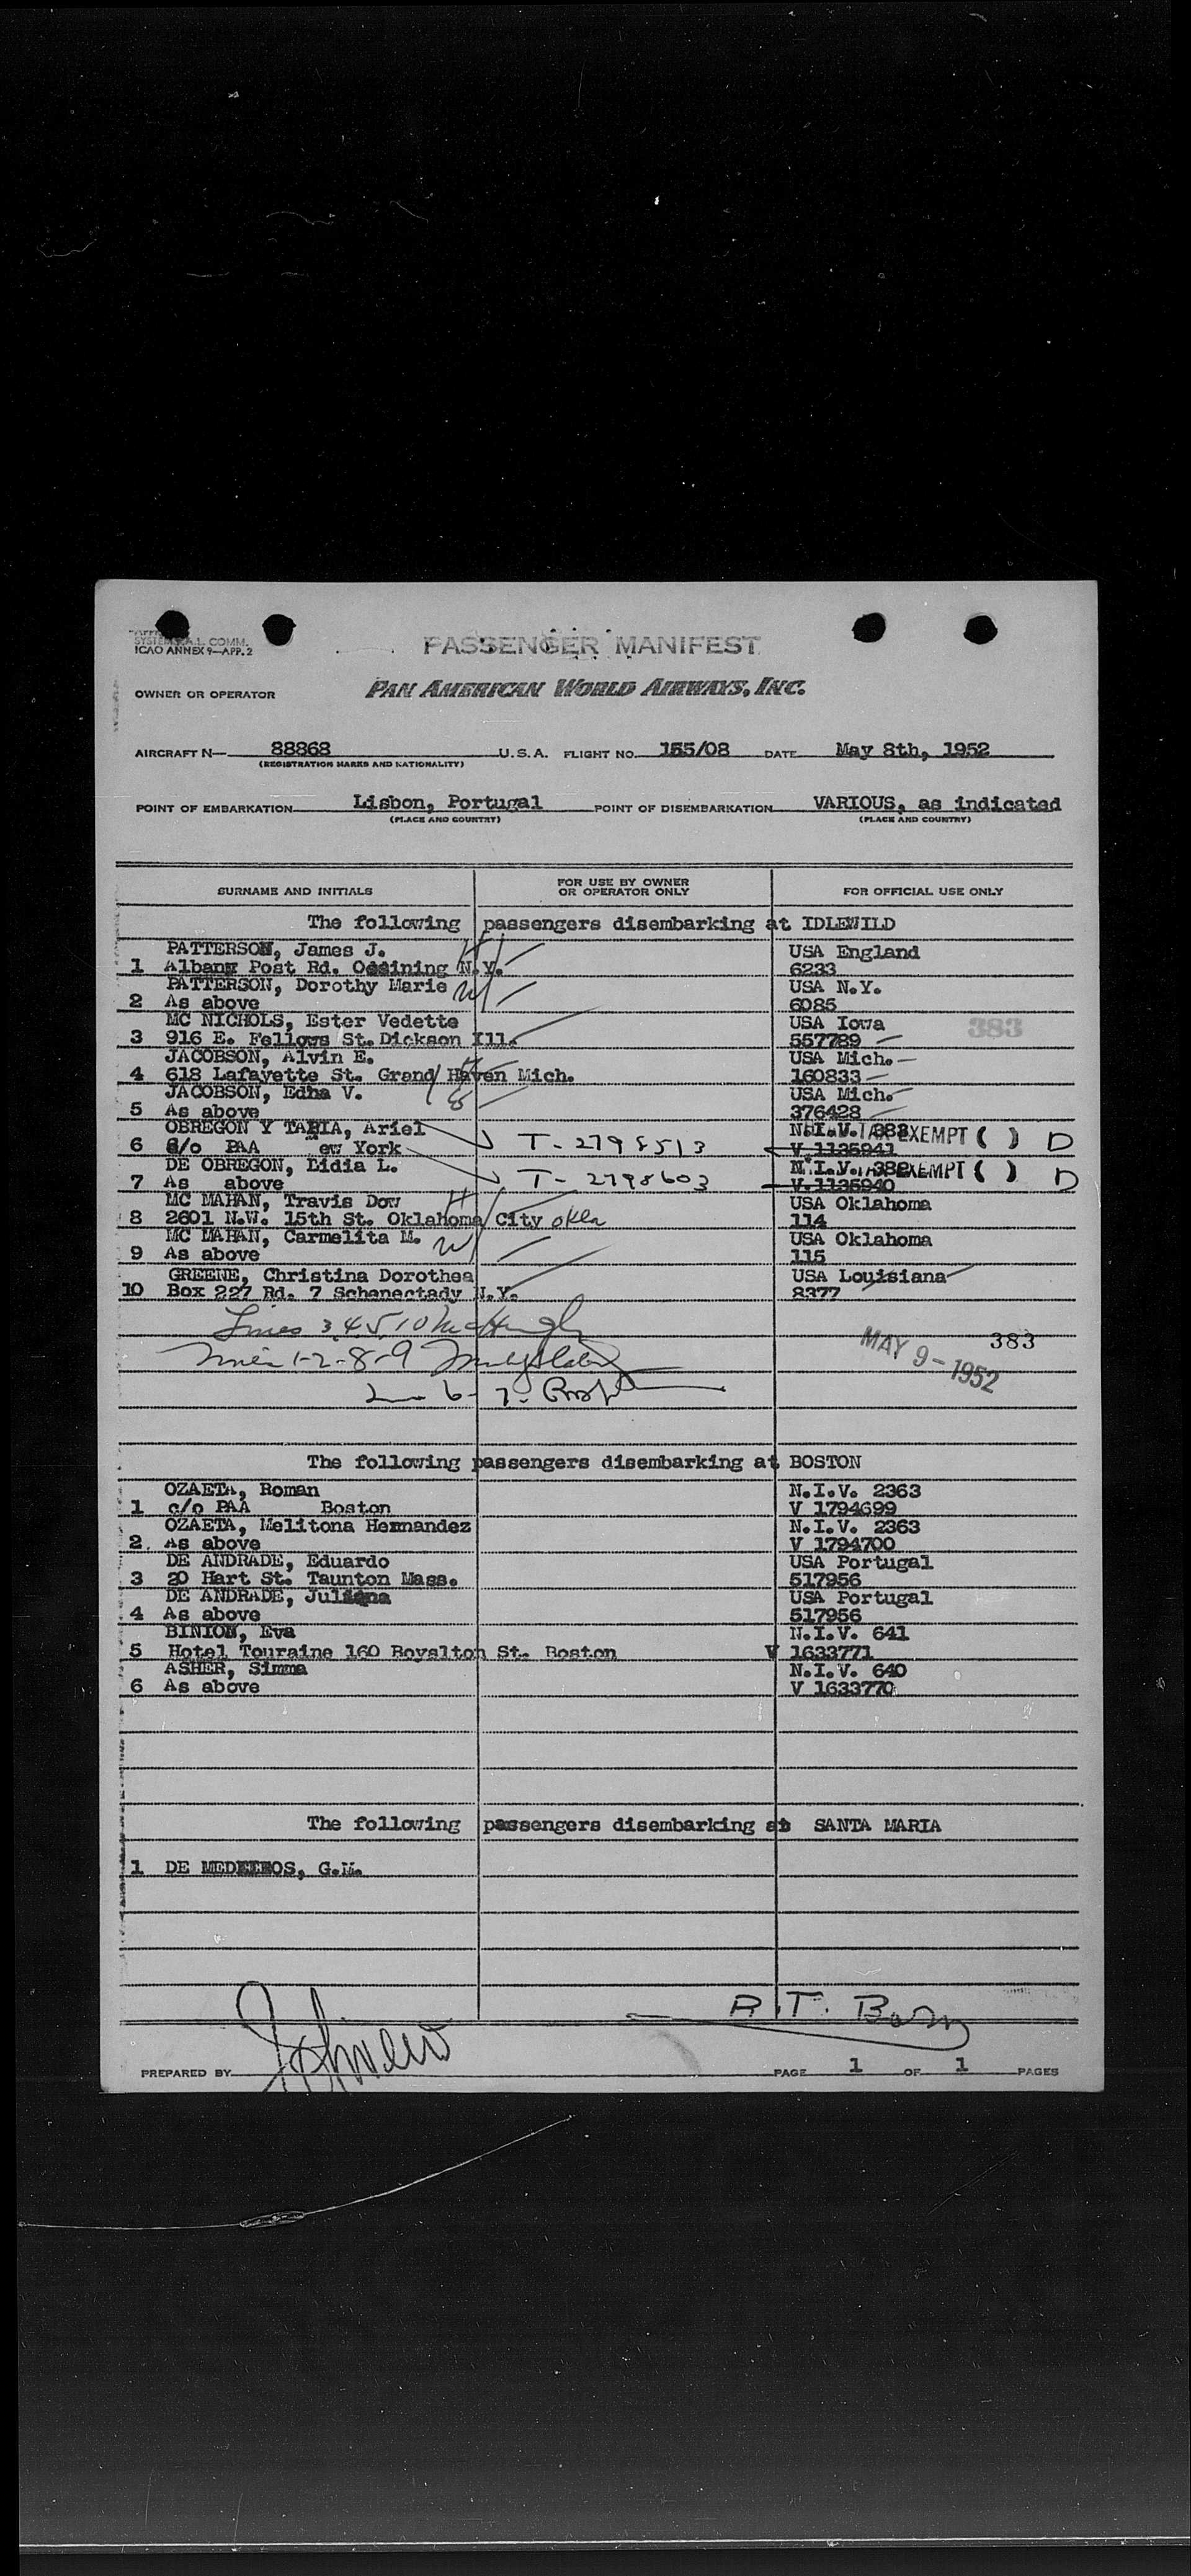 SYSTEM A.L. COMM.
ICAO ANNEX 9—APP. 2
PASSENGER MANIFEST
OWNER OR OPERATOR PAN AMERICAN WORLD AIRWAYS, INC.
AIRCRAFT N— 88868 U.S.A. FLIGHT NO. 155/08 DATE May 8th, 1952
(REGISTRATION MARKS AND NATIONALITY)
POINT OF EMBARKATION Lisbon, Portugal POINT OF DISEMBARKATION VARIOUS, as indicated
(PLACE AND COUNTRY) (PLACE AND COUNTRY)
SURNAME AND INITIALS FOR USE BY OWNER OR OPERATOR ONLY FOR OFFICIAL USE ONLY
The following passengers disembarking at IDLEWILD
PATTERSON, James J. H USA England
1 Albany Post Rd. Ossining N.Y. 6233
PATTERSON, Dorothy Marie W USA N.Y.
2 As above 6085
MC NICHOLS, Ester Vedette USA Iowa 383
3 916 E. Fellows St. Dickson Ill. 557789
JACOBSON, Alvin E. USA Mich.
4 618 Lafayette St. Grand Haven Mich. 160833
JACOBSON, Edna V. USA Mich.
5 As above 376428
OBREGON Y TARIA, Ariel N.I.V. 383 EXEMPT ( ) D
6 c/o PAA New York T-2798513 V 1135941
DE OBREGON, Lidia L. N.I.V. 382 EXEMPT ( ) D
7 As above T-2798603 V 1135940
MC MAHAN, Travis Dow H USA Oklahoma
8 2601 N.W. 15th St. Oklahoma City okla 114
MC MAHAN, Carmelita M. W USA Oklahoma
9 As above 115
GREENE, Christina Dorothea USA Louisiana
10 Box 227 Rd. 7 Schenectady N.Y. 8377
Lines 3.4.5.10
383
1-2-8-9
MAY 9-1952
6-7
The following passengers disembarking at BOSTON
OZAETA, Roman N.I.V. 2363
1 c/o PAA Boston V 1794699
OZAETA, Melitona Hernandez N.I.V. 2363
2. As above V 1794700
DE ANDRADE, Eduardo USA Portugal
3 20 Hart St. Taunton Mass. 517956
DE ANDRADE, Juliana USA Portugal
4 As above 517956
BINION, Eva N.I.V. 641
5 Hotel Touraine 160 Boyslton St. Boston V 1633771
ASHER, Simma N.I.V. 640
6 As above V 1633770
The following passengers disembarking at SANTA MARIA
1 DE MEDEIROS, G.M.
PREPARED BY PAGE 1 OF 1 PAGES